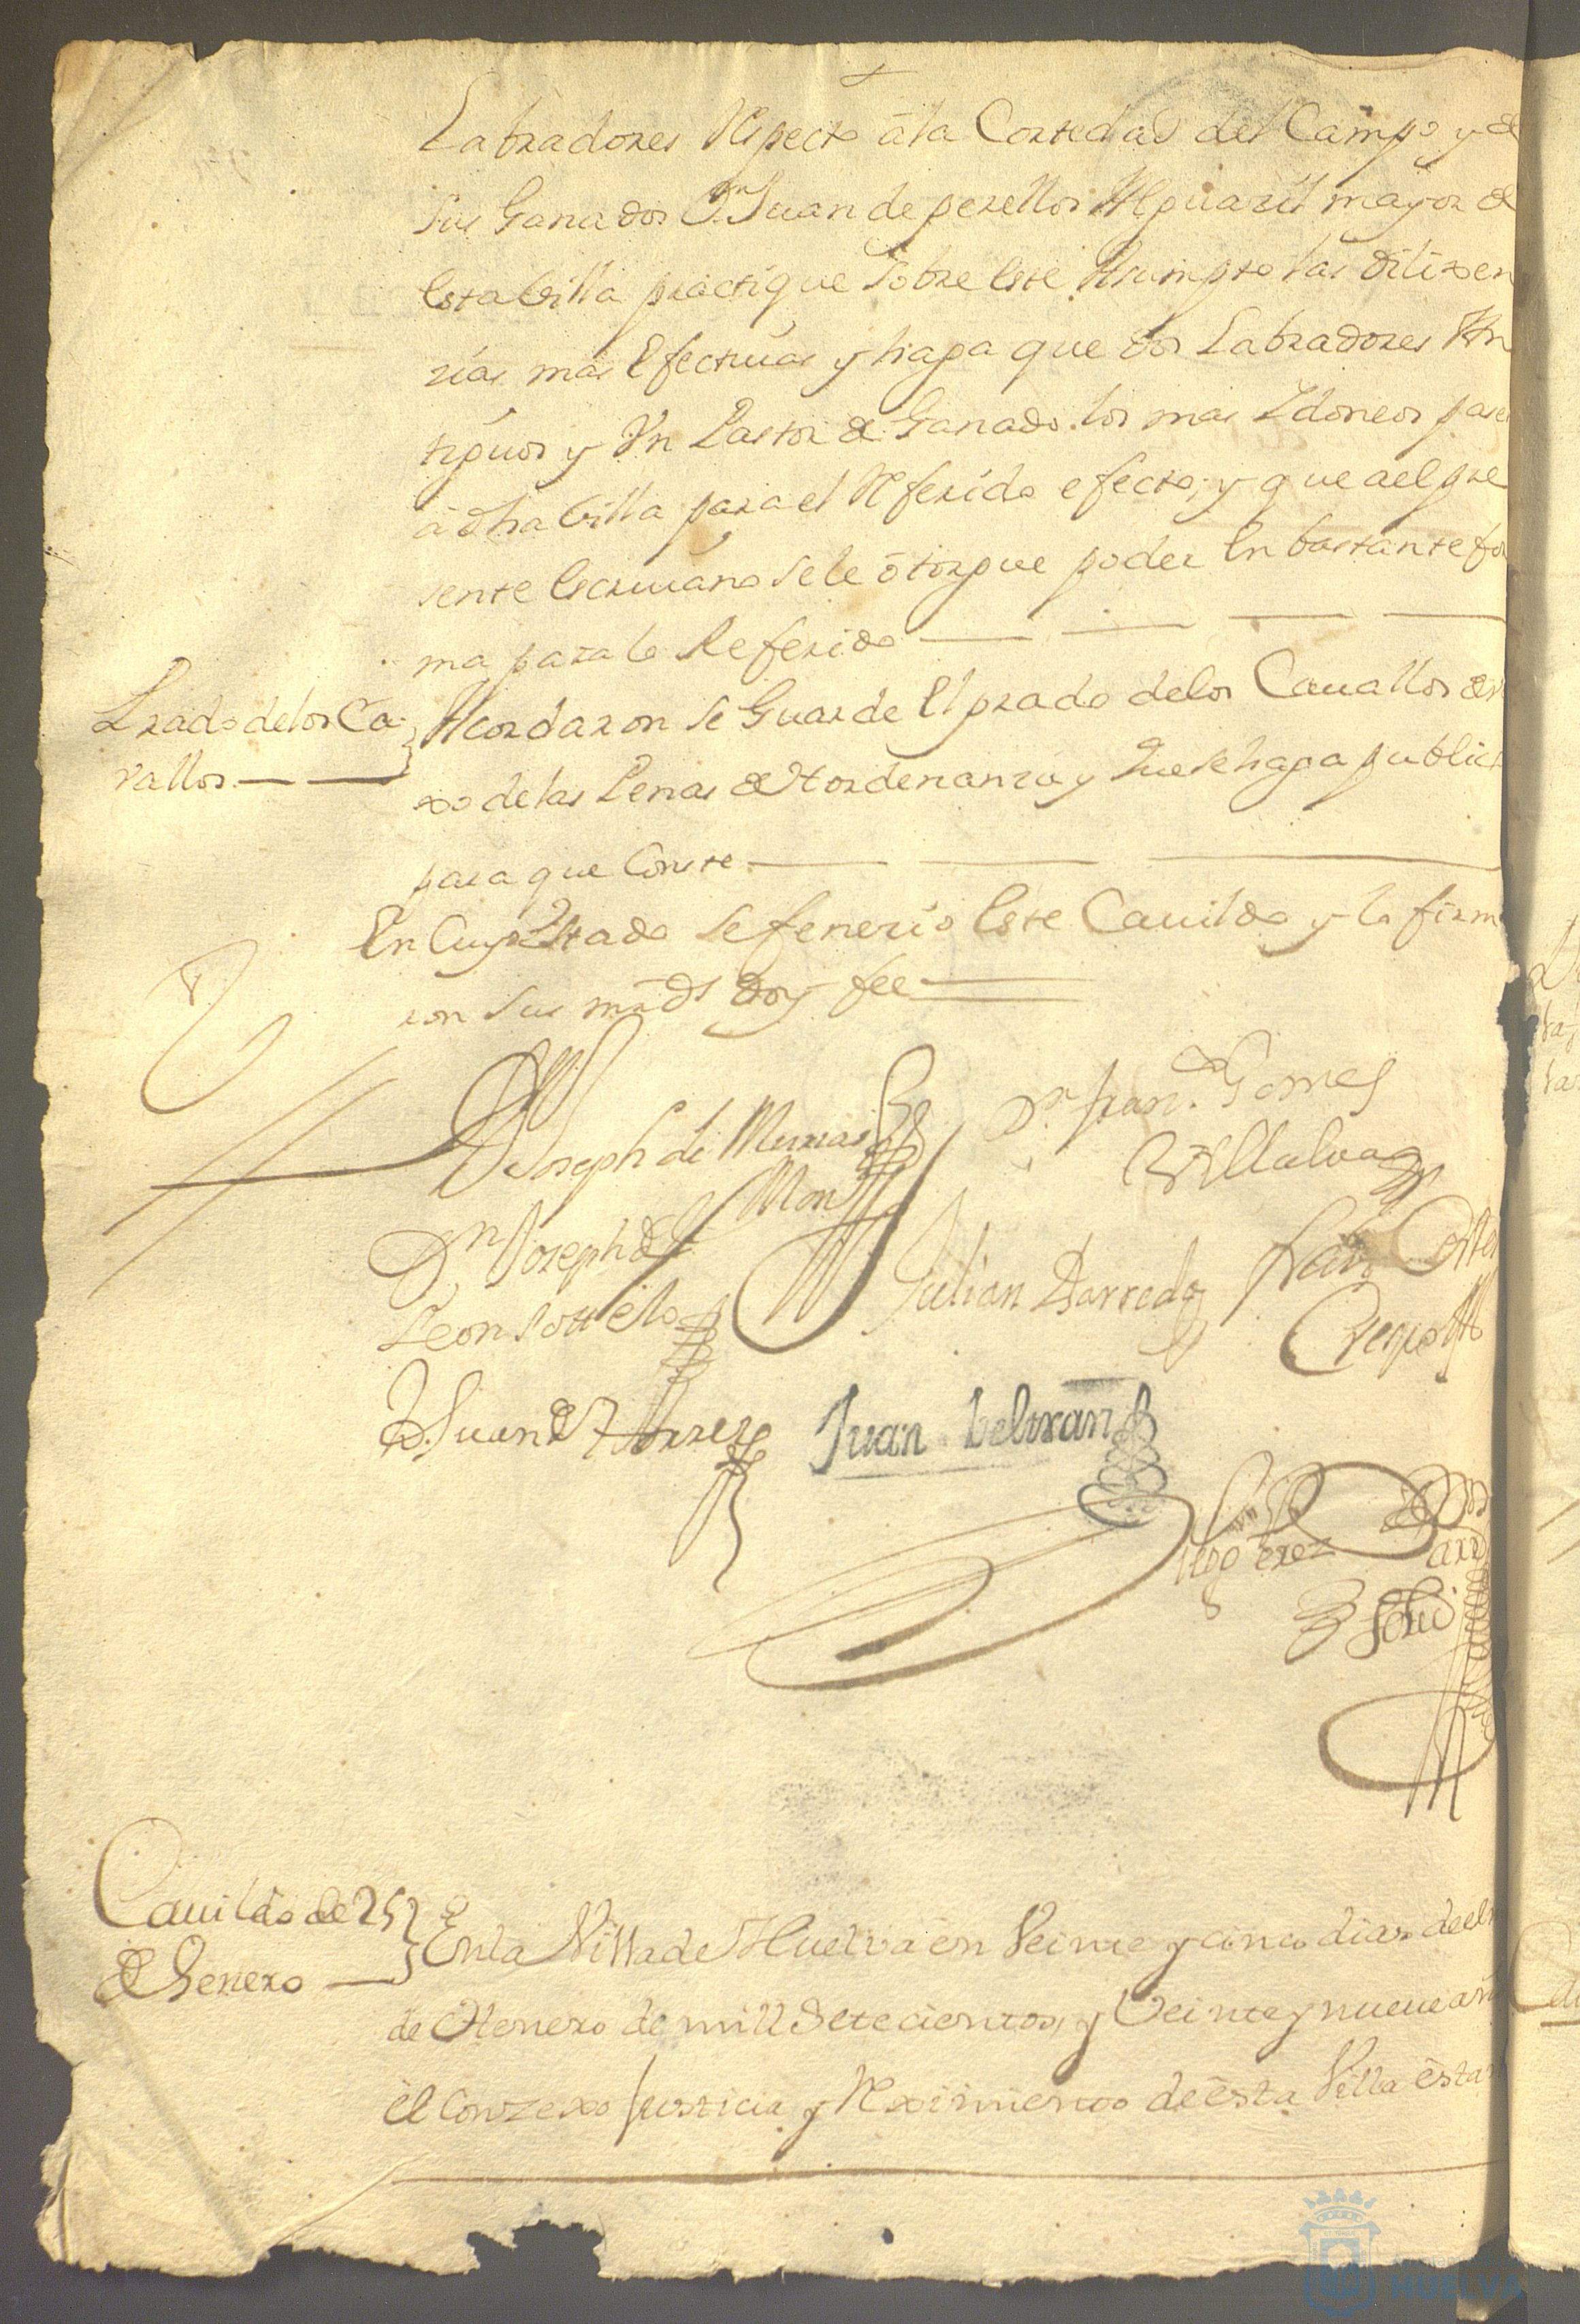 Labradores Respecto â la Cortedad del Campo y de
sus Ganados Dn Juan de perellos Alguazil mayor de
esta Villa practique sobre este Asumpto las dilixen
zias mas efectiuas y haga que dos Labradores An
tiguos y Vn Pastor de Ganado los mas Idoneos pasen
â dha Villa para el Referido efecto; y que a el pre
sente escriuano se le ôtorgue poder en bastante for
ma para lo Referido
Prado de los Ca
vallos
Acordaron se Guarde el prado de los Cauallos
xo de las Penas de Hordenanza y que se haga publico
para que Conste
En Cuyo estado se fenezio este Cauildo y la firma
ron sus mrds doy fee
Joseph de
Dn Fran.co Gomes
Villalua
Dn Joseph de
Leon Sottelo
Julian Barreda
Fran.co Cortes
Dn Juan de
Juan beltran
Perez
Cauildo de 25
de Henero
En la Villa de Huelva en Veinte y cinco dias de el
de Henero de mill Setecientos, y Veinte y nueue añ
el Conzexo Justicia y Reximiento de esta Villa esta
HUELVA